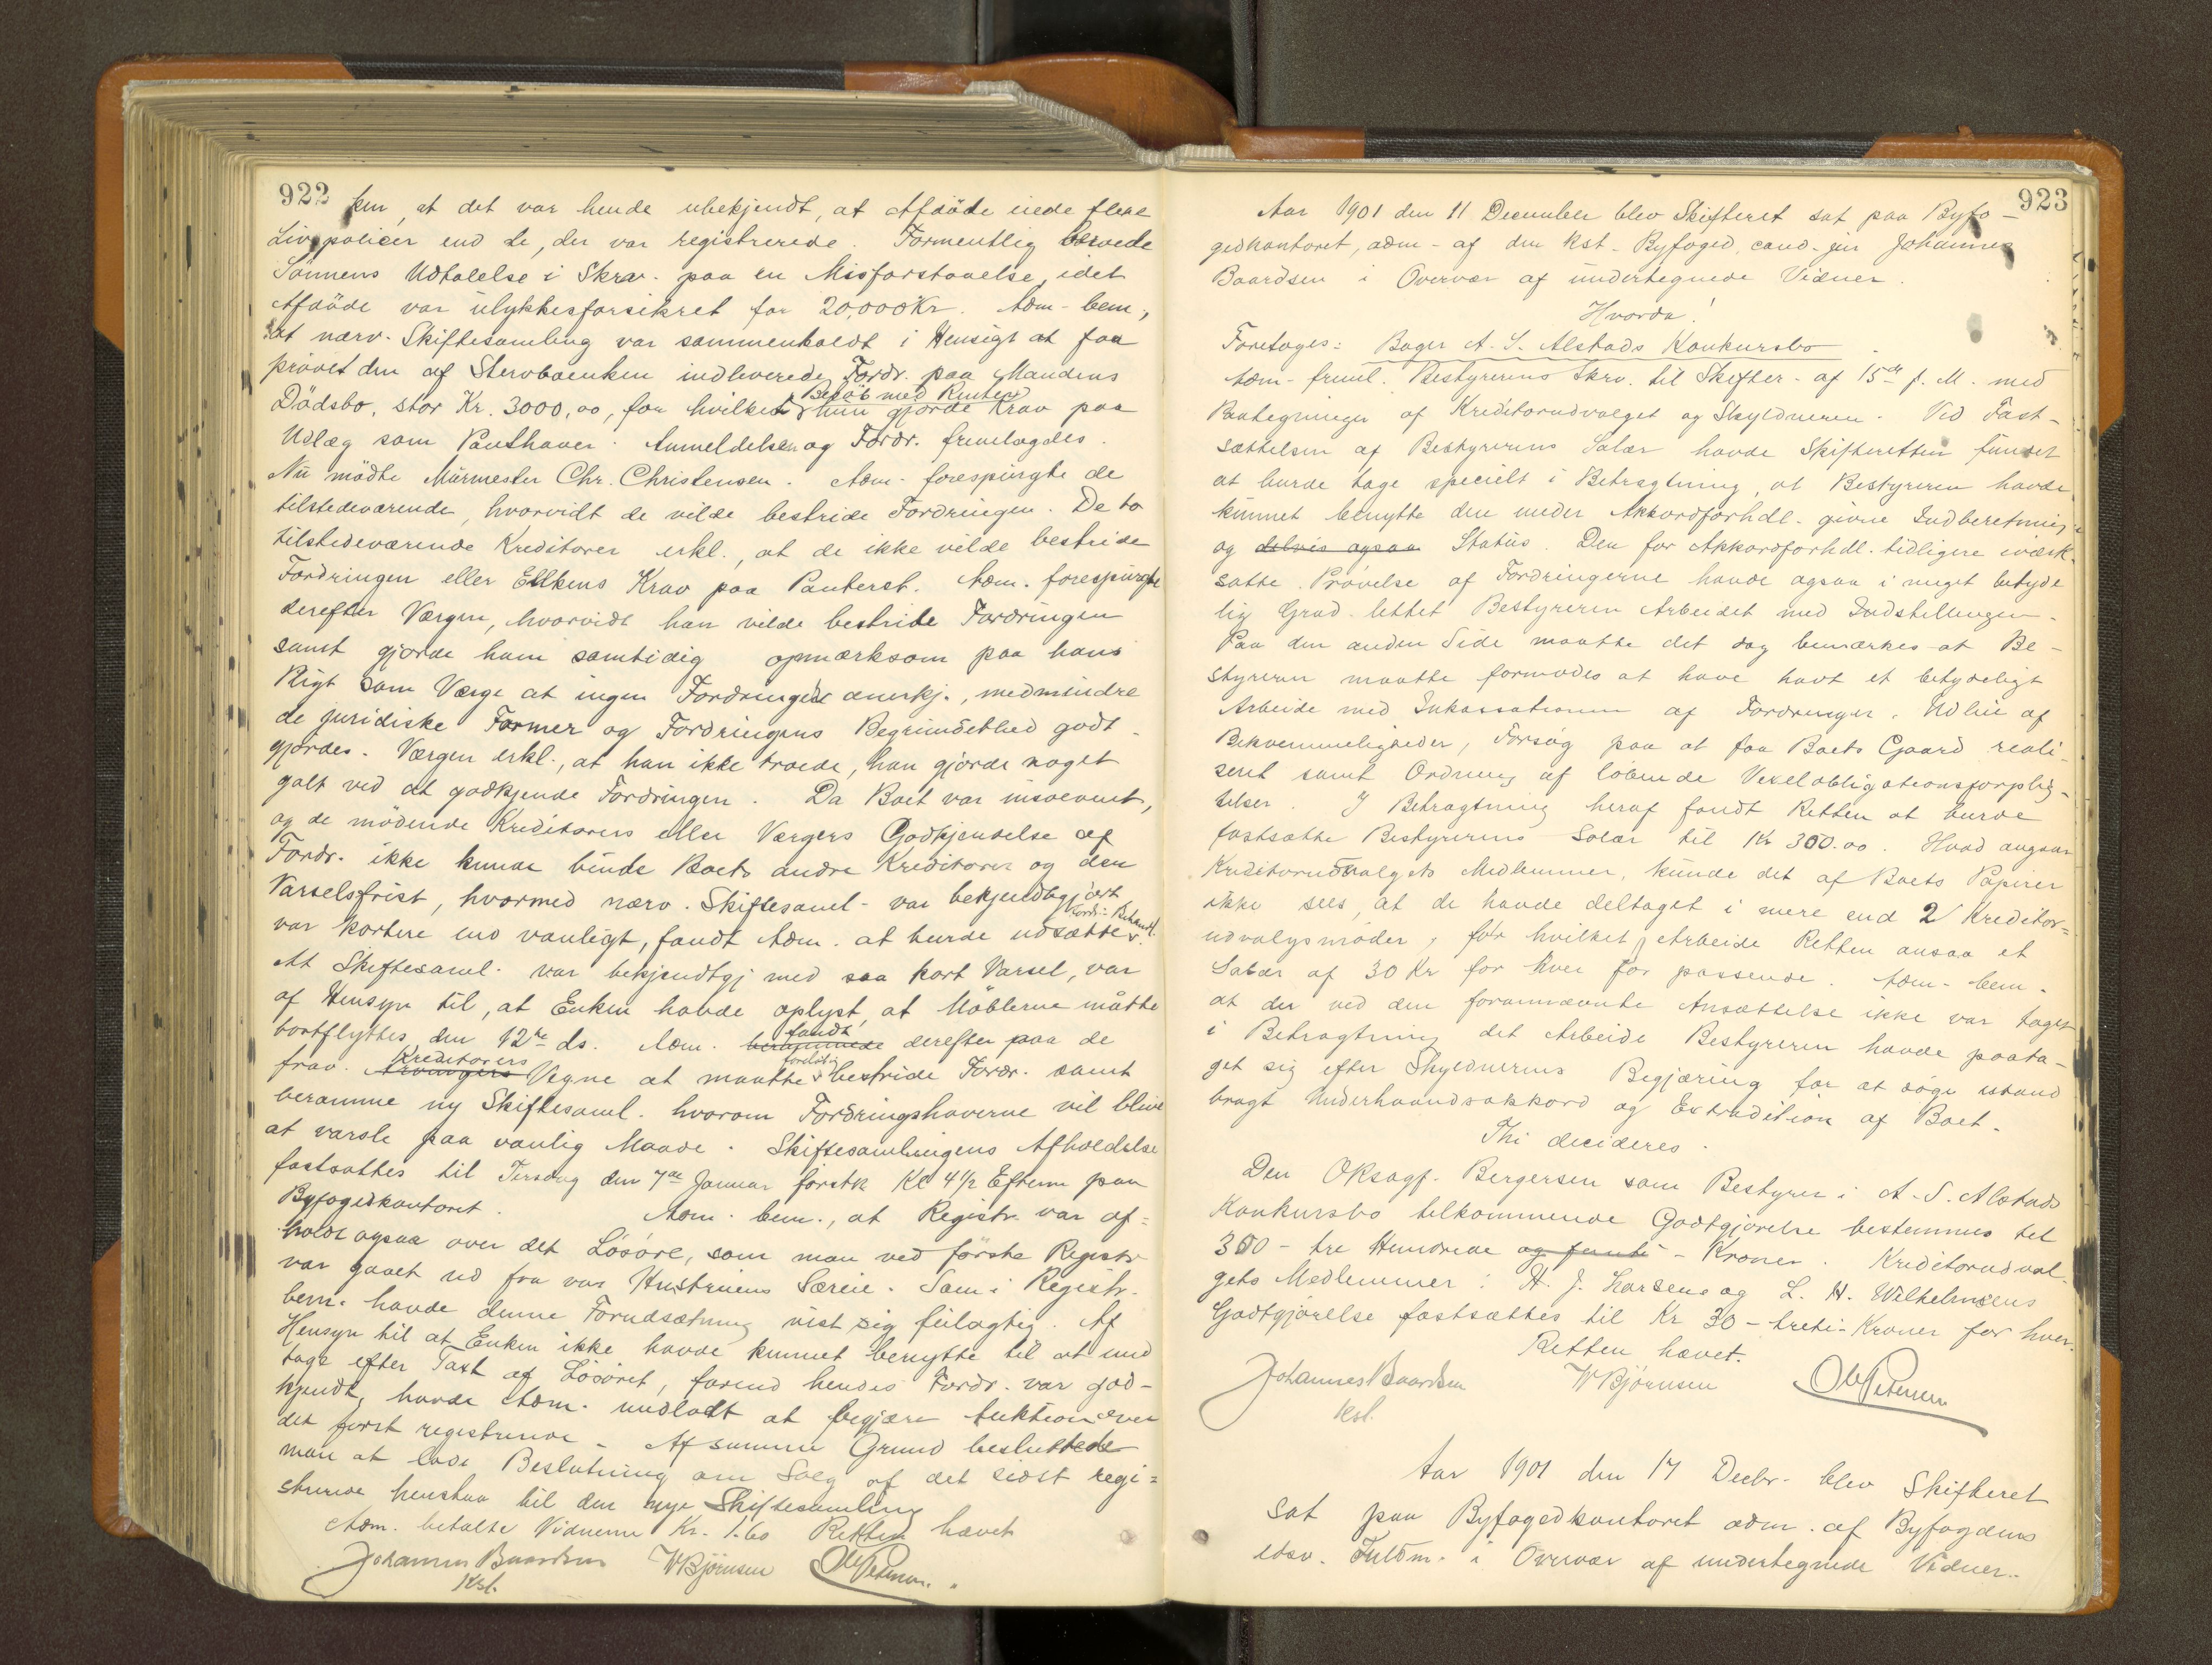 922
ken, at det var hende ubekjendt, at Afdöde eiede flere
Livspolicer end de, der var registrerede. Formentlig beroede
Sönnens Udtalelse i Skrv. paa en Misforstaaelse, idet
Afdöde var ulykkesforsikret for 20,000 Kr. Adm. bem.,
at nærv. Skiftesamling var sammenkaldt i Hensigt at faa
prövet den af Stervboenken indleverede Fordr. paa Mandens
Dödsbo, stor Kr. 3000,00, for hvilket Belöb med Renter hun gjorde Krav paa
Udlæg som Panthaver. Anmeldelsen og Fordr. fremlagdes.
Nu mödte Murmester Chr. Christensen. Adm. forespurgte de
tilstedeværende, hvorvidt de vilde bestride Fordringen. De to
tilstedeværende Kreditorer erkl., at de ikke vilde bestride
Fordringen eller Enkens Krav paa Panteret. Adm. forespurgte
derefter Værgen, hvorvidt han vilde bestride Fordringen
samt gjorde ham samtidig opmærksom paa hans
Pligt som Værge at ingen Fordringer anerkj., medmindre
de juridiske Former og Fordringens Begrundethed godt-
gjordes. Værgen erkl., at han ikke troede, han gjorde noget
galt ved at godkjende Fordringen. Da Boet var insolvent,
og de mödende Kreditorers eller Værgers Godkjendelse af
Fordr. ikke kunde binde Boets andre Kreditorer og den
Varselsfrist, hvormed nærv. Skiftesaml. var bekjendtgjort
var kortere end vanligt, fandt Adm. at burde udsætte Fordr. Behandl.
At Skiftesaml. var bekjendtgj med saa kort Varsel, var
af Hensyn til, at Enken havde oplyst, at Möblerne måtte
bortflyttes den 12te ds. Adm. fandt derefter paa de
frav. Kreditorers Vegne at maatte foreløbig bestride Fordr. samt
beramme ny Skiftesaml. hvorom Fordringshaverne vil blive
at varsle paa vanlig Maade. Skiftesamlingens Afholdelse
fastsattes til Tirsdag den 7de Januar förstk Kl 4 1/2 Efterm paa
Byfogedkontoret. Adm. bem., at Registr. var af=
holdt ogsaa over det Lösöre, som man ved förste Registr
var gaaet ud fra var Hustruens Særeie. Som i Registr.
bem. havde denne Forudsætning vist sig feilagtig. Af
Hensyn til at Enken ikke havde kunnet benytte til at und
tage efter Taxt af Lösöret, forend hendes Fordr. var god-
kjendt, havde Adm. undladt at begjære Auktion over
det först registrerede. Af samme Grund besluttede
man at lade Beslutning om Salg af det sidst regi=
strerede henstaa til den nye Skiftesamling
Adm. betalte Vidnerne Kr. 1.60 Retten hævet
Johannes Baardsen WBjörnsen Ole Petersen
Kst.
923
Aar 1901 den 11 December blev Skifteret sat paa Byfo-
gedkontoret, adm. af den kst. Byfoged, cand. jur Johannes
Baardsen i Overvær af undertegnede Vidner.
Hvorda!
Foretoges: Bager A. S. Alstads Konkursbo
Adm. freml. Bestyrerens Skrv. til Skifter. af 15de f. M. med
Paategninger af Kreditorudvalget og Skyldneren. Ved Fast-
sættelsen af Bestyrerens Salær havde Skifteretten fundet
at burde tage specielt i Betragtning, at Bestyreren havde
kunnet benytte den under Akkordforhdl. givne Indberetning
og delvis ogsaa Status. Den for Akkordforhdl. tidligere iværk-
satte Prövelse af Fordringerne havde ogsaa i meget betyde
lig Grad lettet Bestyreren Arbeidet med Indstillingen.
Paa den anden Side maatte det dog bemærkes at Be-
styreren maatte formodes at have havt et betydeligt
Arbeide med Inkassationen af Fordringer, Udleie af
Bekvemmeligheder, Forsøg paa at faa Boets Gaard reali-
seret samt Ordning af löbende Vexelobligationsforplig-
telser. I Betragtning heraf fandt Retten at burde
fastsætte Bestyrerens Salær til Kr 300.00. Hvad angaar
Kreditorudvalgets Medlemmer, kunde det af Boets Papirer
ikke sees, at de havde deltaget i mere end 2 Kreditor=
udvalgsmöder, for hvilket Arbeide Retten ansaa et
Salær af 30 Kr for hver for passende. Adm. bem.
at der ved den forannævnte Ansættelse ikke var taget
i Betragtning det Arbeide Bestyreren havde paata-
get sig efter Skyldnerens Begjæring for at söge istand
bragt Underhaandsakkord og Extradition af Boet.
Thi decideres.
Den OKsagf. Bergersen som Bestyrer i A. S. Alstads
Konkursbo tilkommende Godtgjörelse bestemmes til
300 - tre Hundrede og femti - Kroner. Kreditorudval-
gets Medlemmer: H. J. Larsens og L. H. Wilhelmsens
Godtgjörelse fastsættes til Kr 30 - treti - Kroner for hver.
Retten hævet.
Johannes Baardsen WBjörnsen Ole Petersen
Kst.
Aar 1901 den 17 Decbr. blev Skifteret
sat paa Byfogedkontoret adm. af Byfogdens
edsv. Fuldm. i Overvær af undertegnede Vidner.